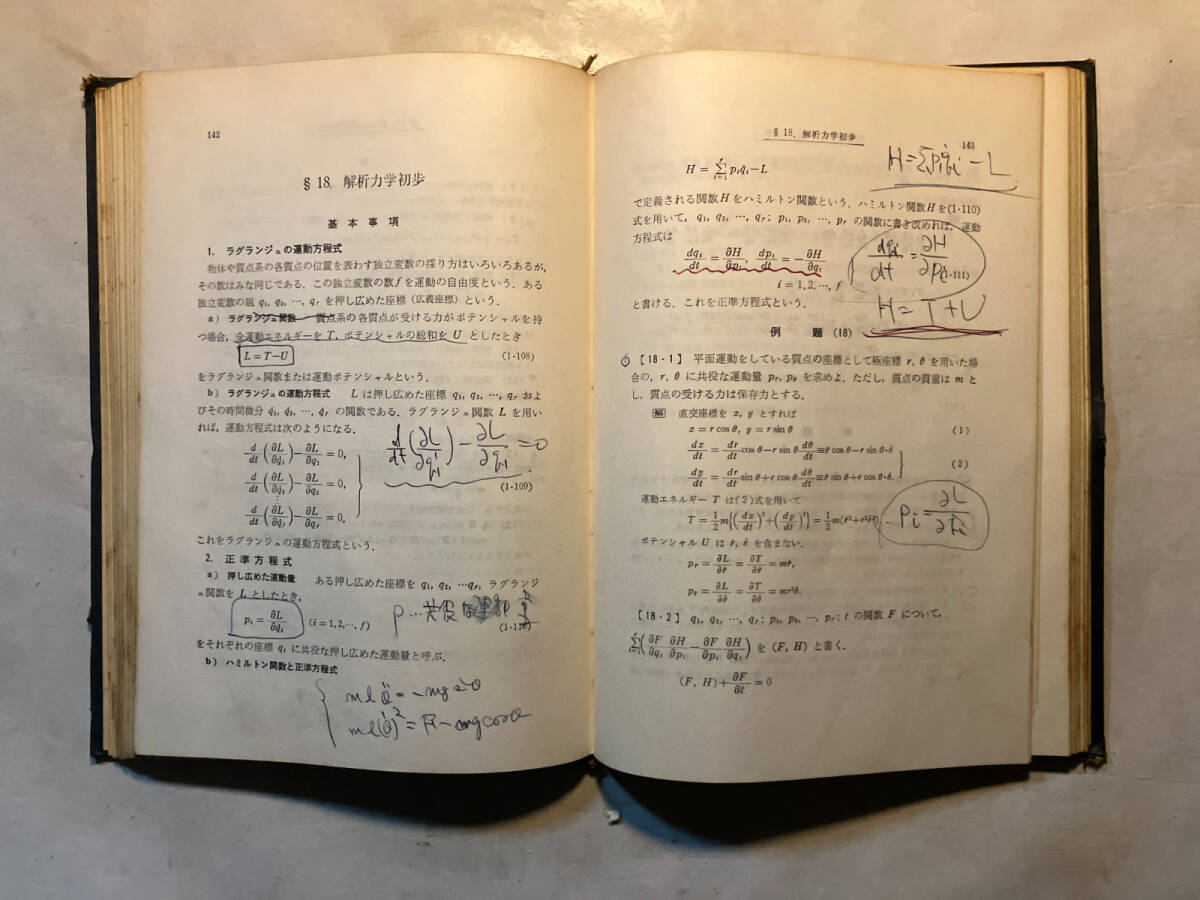 142
§ 18. 解析力学初歩
基本事項
1. ラグランジュの運動方程式
物体や質点系の各質点の位置を表わす独立変数の採り方はいろいろあるが,
その数はみな同じである. この独立変数の数fを運動の自由度という. ある
独立変数の組 q₁, q₂, …, q_f を押し広めた座標(広義座標)という.
a) ラグランジュ関数 質点系の各質点が受ける力がポテンシャルを持
つ場合, 全運動エネルギーを T, ポテンシャルの総和を U としたとき
L=T−U (1·108)
をラグランジュ関数または運動ポテンシャルという.
b) ラグランジュの運動方程式 L は押し広めた座標 q₁, q₂, …, q_f およ
びその時間微分 q̇₁, q̇₂, …, q̇_f の関数である. ラグランジュ関数 L を用い
れば, 運動方程式は次のようになる.
d/dt (∂L/∂q̇₁)−∂L/∂q₁=0,
d/dt (∂L/∂q̇ᵢ)−∂L/∂qᵢ=0
d/dt (∂L/∂q̇₂)−∂L/∂q₂=0,
⋮
(1·109)
d/dt (∂L/∂q̇_f)−∂L/∂q_f=0.
これをラグランジュの運動方程式という.
2. 正準方程式
a) 押し広めた運動量 ある押し広めた座標を q₁, q₂, …q_f, ラグランジ
ュ関数を L としたとき,
pᵢ=∂L/∂q̇ᵢ (i=1,2,…,f)
p…共役な運動量
をそれぞれの座標 qᵢ に共役な押し広めた運動量と呼ぶ.
b) ハミルトン関数と正準方程式
mlθ̈=−mg sinθ
ml(θ̇)²=F−mg cosθ
§ 18. 解析力学初歩 143
H=Σpᵢq̇ᵢ−L
H=Σ_{i=1}^{f} pᵢq̇ᵢ−L
で定義される関数Hをハミルトン関数という. ハミルトン関数Hを(1·110)
式を用いて, q₁, q₂, …, q_f; p₁, p₂, …, p_f の関数に書き改めれば, 運動
方程式は
dqᵢ/dt=∂H/∂pᵢ, dpᵢ/dt=−∂H/∂qᵢ (1·111)
dqᵢ/dt=∂H/∂pᵢ
i=1,2,…,f
と書ける. これを正準方程式という.
H=T+U
例題 (18)
[18·1] 平面運動をしている質点の座標として極座標 r, θ を用いた場
合の, r, θ に共役な運動量 p_r, p_θ を求めよ. ただし, 質点の質量は m と
し, 質点の受ける力は保存力とする.
解 直交座標を x, y とすれば
x=r cosθ, y=r sinθ (1)
dx/dt=dr/dt cosθ−r sinθ dθ/dt≡ṙ cosθ−r sinθ·θ̇
(2)
dy/dt=dr/dt sinθ+r cosθ dθ/dt≡ṙ sinθ+r cosθ·θ̇.
運動エネルギー T は(2)式を用いて
T=1/2 m{(dx/dt)²+(dy/dt)²}=1/2 m(ṙ²+r²θ̇²).
ポテンシャル U は ṙ, θ̇ を含まない.
p_r=∂L/∂ṙ=∂T/∂ṙ=mṙ,
p_θ=∂L/∂θ̇=∂T/∂θ̇=mr²θ̇.
[18·2] q₁, q₂, …, q_f; p₁, p₂, …, p_f; t の関数 F について,
Σ_{i=1}^{f}(∂F/∂qᵢ ∂H/∂pᵢ−∂F/∂pᵢ ∂H/∂qᵢ) を (F, H) と書く.
(F, H)+∂F/∂t=0